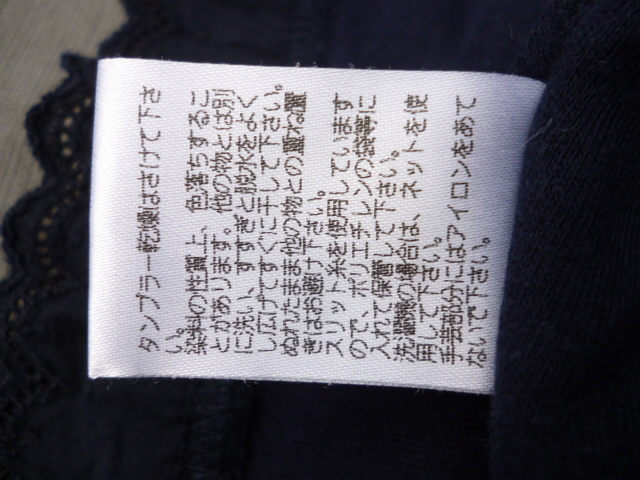 タンブラー乾燥はさけて下さ
い。
染料の性質上、色落ちするこ
とがあります。他の物とは別
に洗い、すすぎと脱水をよく
し広げてすぐに干して下さい。
ぬれたまま他の物との重ね置
きはお避け下さい。
スリット糸を使用しています
ので、ポリエチレンの袋等に
入れて保管して下さい。
洗濯機の場合は、ネットを使
用して下さい。
手芸部分にはアイロンをあて
ないで下さい。